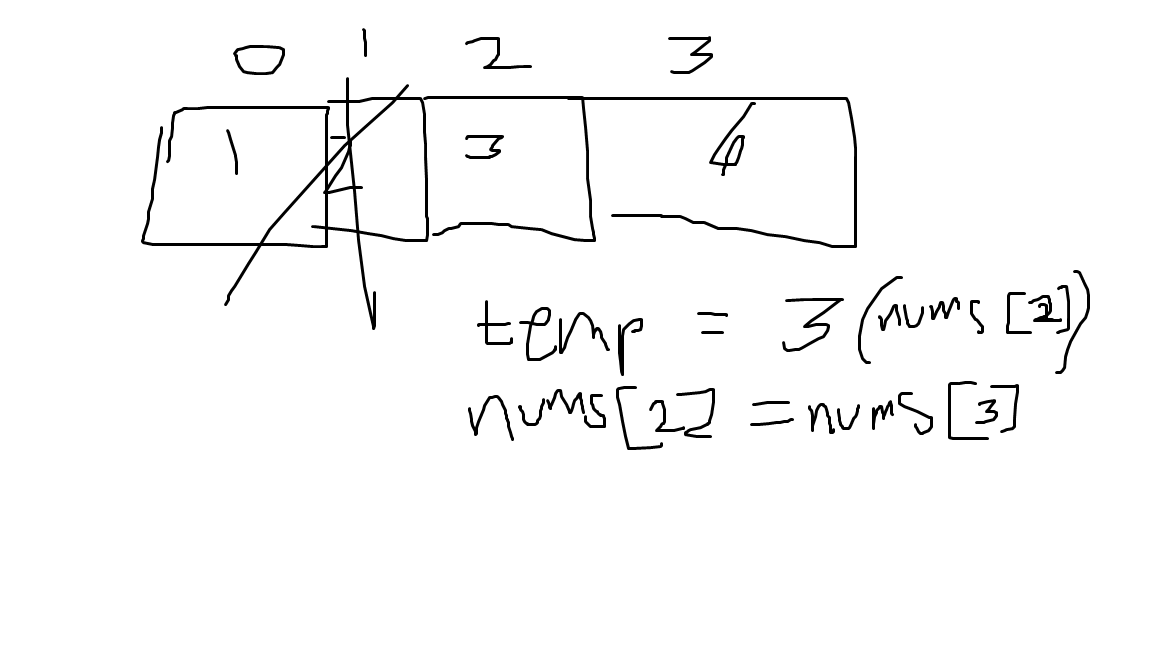 0 1 2 3
1 2 3 4
temp = 3 (nums[2])
nums[2] = nums[3]